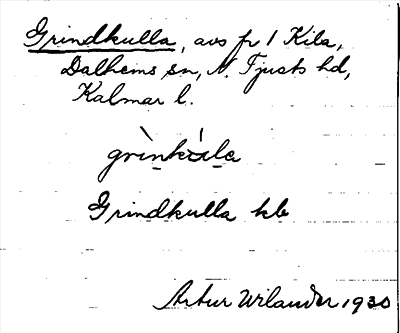 Grindkulla, avs fr 1 Kila,
Dalhems sn, N. Tjusts hd,
Kalmar l.
grìnkúla
Grindkulla kb
Artur Wilander 1930